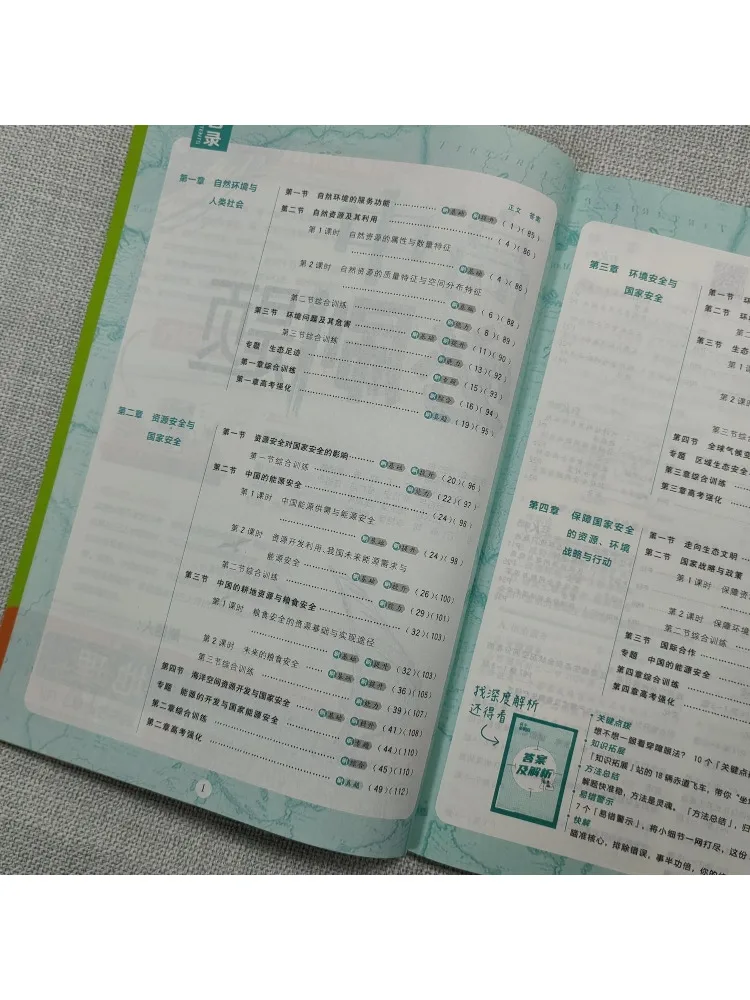 录
CONTENTS
正文 答案
第一章 自然环境与
人类社会
第一节 自然环境的服务功能 刷基础 刷提升 (1)(85)
第二节 自然资源及其利用 (4)(86)
第1课时 自然资源的属性与数量特征
刷基础 (4)(86)
第2课时 自然资源的质量特征与空间分布特征
刷基础 (6)(88)
第二节综合训练 刷能力 (8)(89)
第三节 环境问题及其危害 刷基础 刷提升 (11)(90)
第三节综合训练 刷能力 (13)(92)
专题 生态足迹 刷专题 (15)(93)
第一章综合训练 刷综合 (16)(94)
第一章高考强化 刷真题 (19)(95)
第二章 资源安全与
国家安全
第一节 资源安全对国家安全的影响 刷基础 刷提升 (20)(96)
第一节综合训练 刷能力 (22)(97)
第二节 中国的能源安全 (24)(98)
第1课时 中国能源供需与能源安全
刷基础 刷提升 (24)(98)
第2课时 资源开发利用、我国未来能源需求与
能源安全 刷基础 刷提升 (26)(100)
第二节综合训练 刷能力 (29)(101)
第三节 中国的耕地资源与粮食安全 (32)(103)
第1课时 粮食安全的资源基础与实现途径
刷基础 刷提升 (32)(103)
第2课时 未来的粮食安全 刷基础 刷提升 (36)(105)
第三节综合训练 刷能力 (39)(107)
第四节 海洋空间资源开发与国家安全 刷基础 刷提升 (41)(108)
专题 能源的开发与国家能源安全 刷专题 (44)(110)
第二章综合训练 刷综合 (45)(110)
第二章高考强化 刷真题 (49)(112)
1
第三章 环境安全与
国家安全
第一节
第二节
第三节 生态
第1课
第2课时
第三节综
第四节 全球气候变
专题 区域生态安全
第三章综合训练
第三章高考强化
第四章 保障国家安全
的资源、环境
战略与行动
第一节 走向生态文明
第二节 国家战略与政策
第1课时 保障资
第2课时 保障环境
第二节综合训练
第三节 国际合作
专题 中国的能源安全
第四章综合训练
第四章高考强化
找深度解析
还得看
答案
及解析
关键点拨
想不想一眼看穿障眼法? 10个「关键点
知识拓展
「知识拓展」站的18辆赤道飞车,带你“坐
方法总结
解题快准稳,方法是灵魂。「方法总结」,归
易错警示
7个「易错警示」,将小细节一网打尽,这份
快解
瞄准核心,排除错误,事半功倍,你的